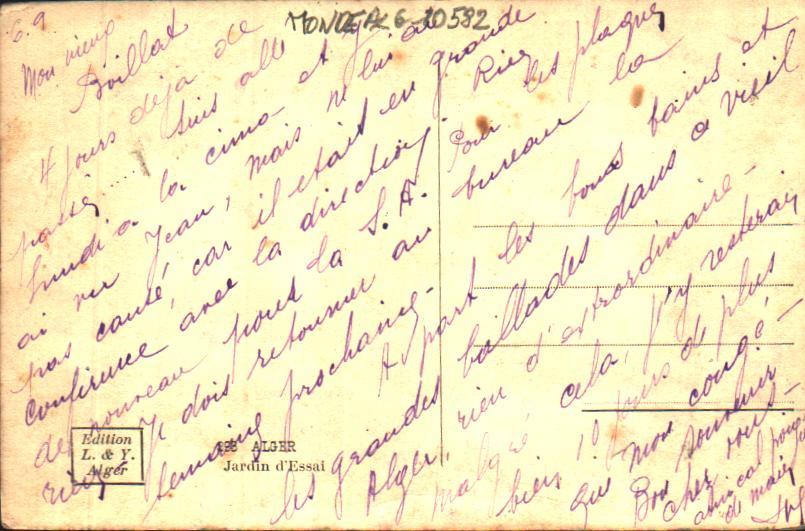 6.9
MONDEAL 6-10582
Mon vieux
Boillat
4 jours déjà de
passés..... suis allé
lundi à la cimo et j'
ai vu Jean, mais ne lui ai
pas causé, car il était en grande
conférence avec la direction
de nouveau pour la S.A. Rien
rien. Je dois retourner au bureau la
semaine prochaine.
Pour les plaques
A part les bons bains et
les grandes ballades dans a vieil
Alger, rien d'extraordinaire.
Malgré cela, j'y resterai
bien 10 jours de plus
que mon congé.
Bon souvenir
chez vous.
amical
de main
Edition
L. & Y.
Alger
ALGER
Jardin d'Essai